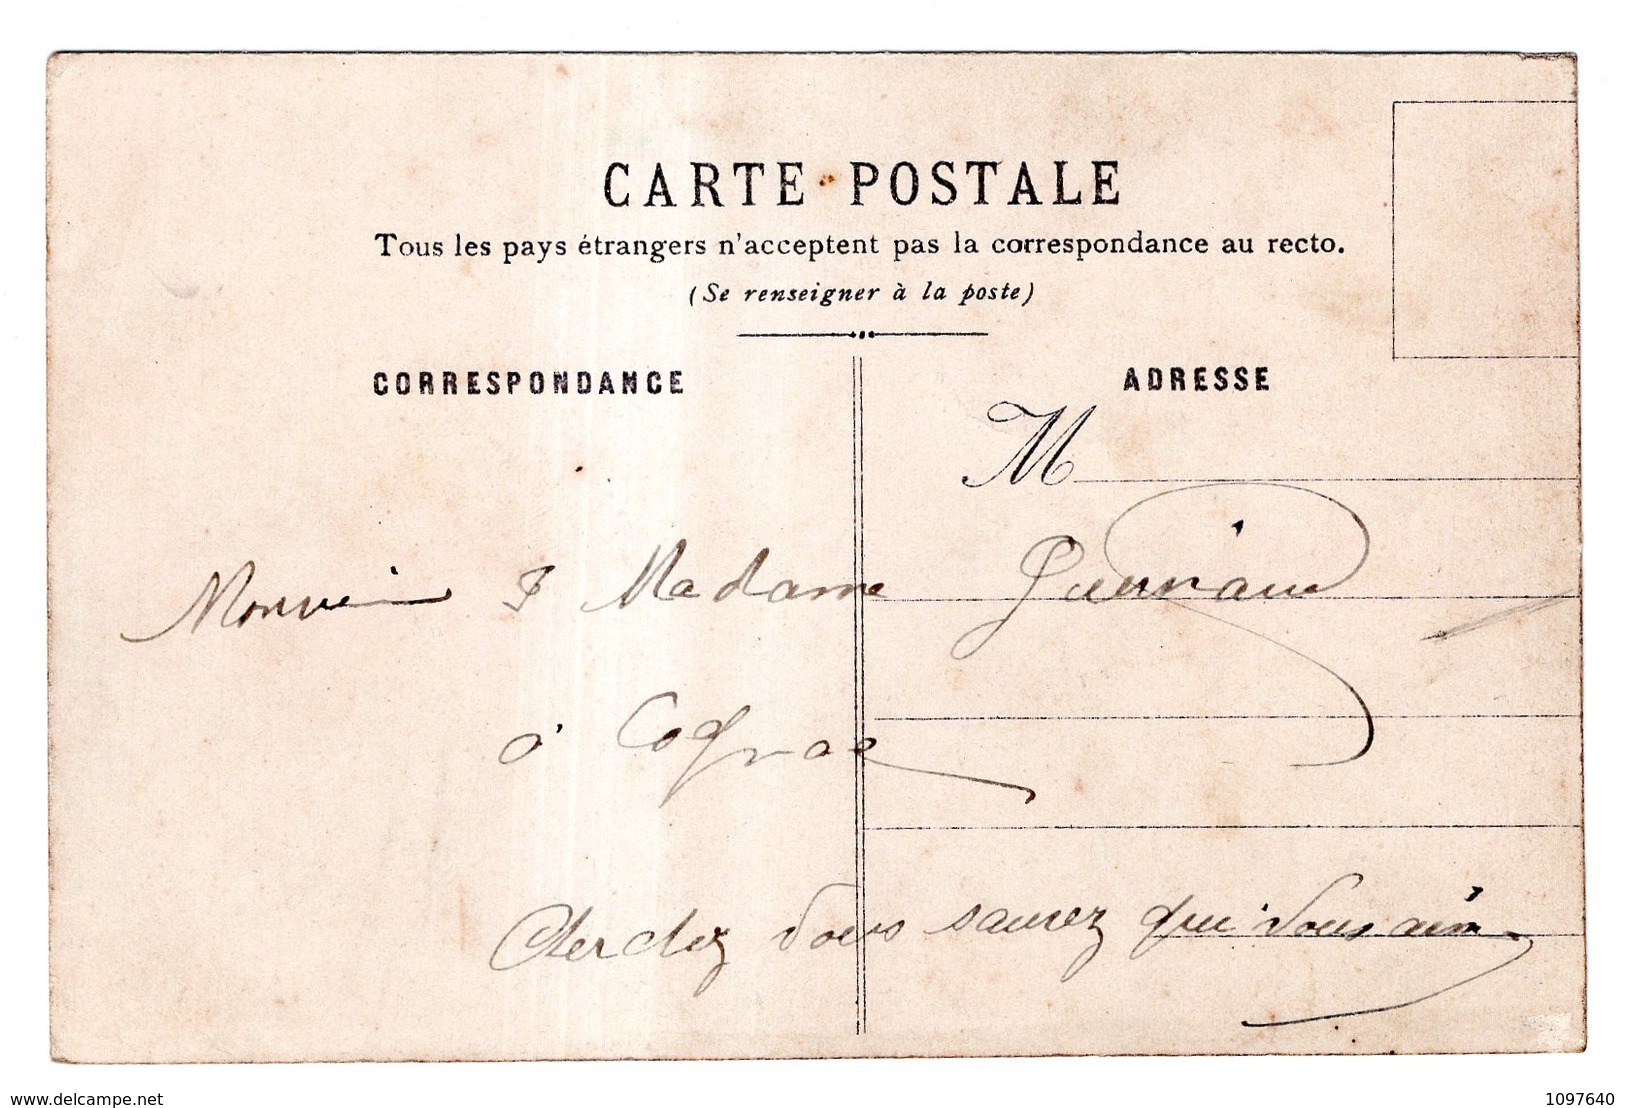 CARTE POSTALE
Tous les pays étrangers n'acceptent pas la correspondance au recto.
(Se renseigner à la poste)
CORRESPONDANCE
ADRESSE
M
Madame
à Cognac
Cherchez vous saurez qui vous aim
www.delcampe.net
1097640